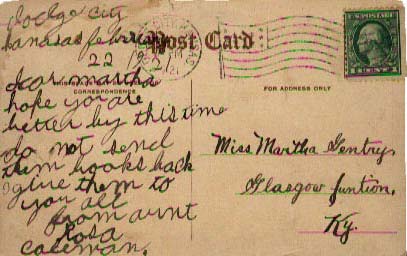 dodge city
kansas februar
22 1921
Post Card
dear martha
CORRESPONDENCE
FOR ADDRESS ONLY
hope you are
better by this time
do not send
them books back
I give them to
you all
from aunt
Rosa
Coleman.
Miss Martha Gentry,
Glasgow Juntion,
Ky.